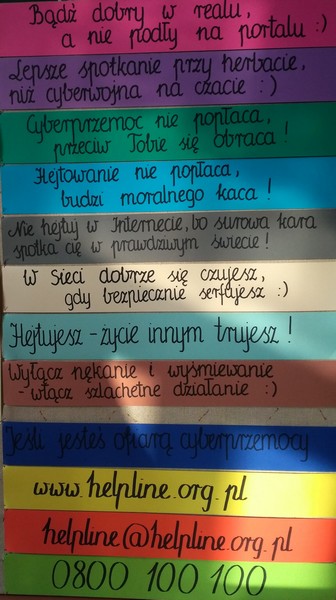 Bądź dobry w realu,
a nie podły na portalu :)
Lepsze spotkanie przy herbacie,
niż cyberwojna na czacie :)
Cyberprzemoc nie popłaca,
przeciw Tobie się obraca!
Hejtowanie nie popłaca,
budzi moralnego kaca!
Nie hejtuj w Internecie, bo surowa kara
spotka cię w prawdziwym świecie!
W Sieci dobrze się czujesz,
gdy bezpiecznie serfujesz :)
Hejtujesz - życie innym trujesz!
Wyłącz nękanie i wyśmiewanie
- włącz szlachetne działanie :)
Jeśli jesteś ofiarą cyberprzemocy
www.helpline.org.pl
helpline@helpline.org.pl
0800 100 100